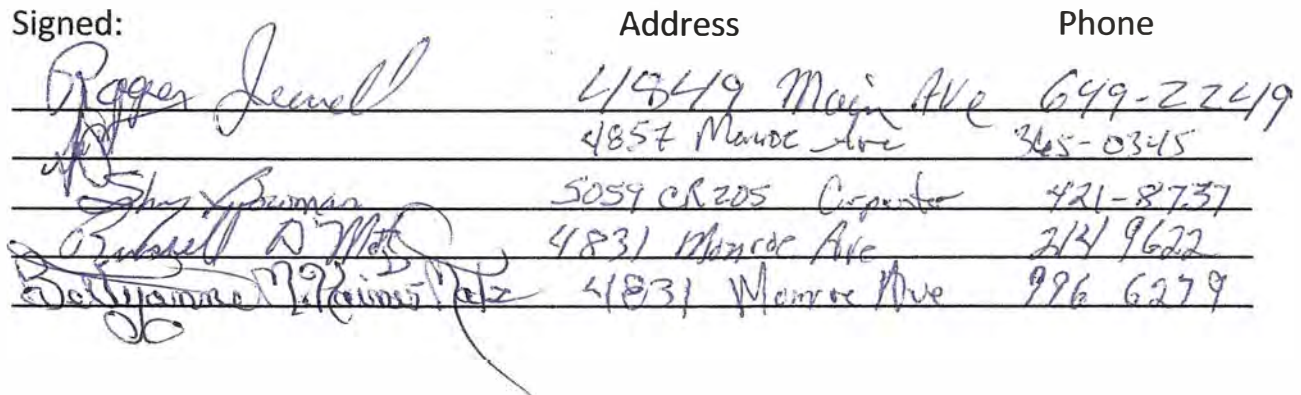 Signed: Address Phone
Roger Jewell 4849 Main Ave 649-2249
4857 Monroe Ave 365-0345
Bowman 5059 CR 205 Carpenter 421-8737
Russell D Motz 4831 Monroe Ave 214 9622
Motz 4831 Monroe Ave 996 6279